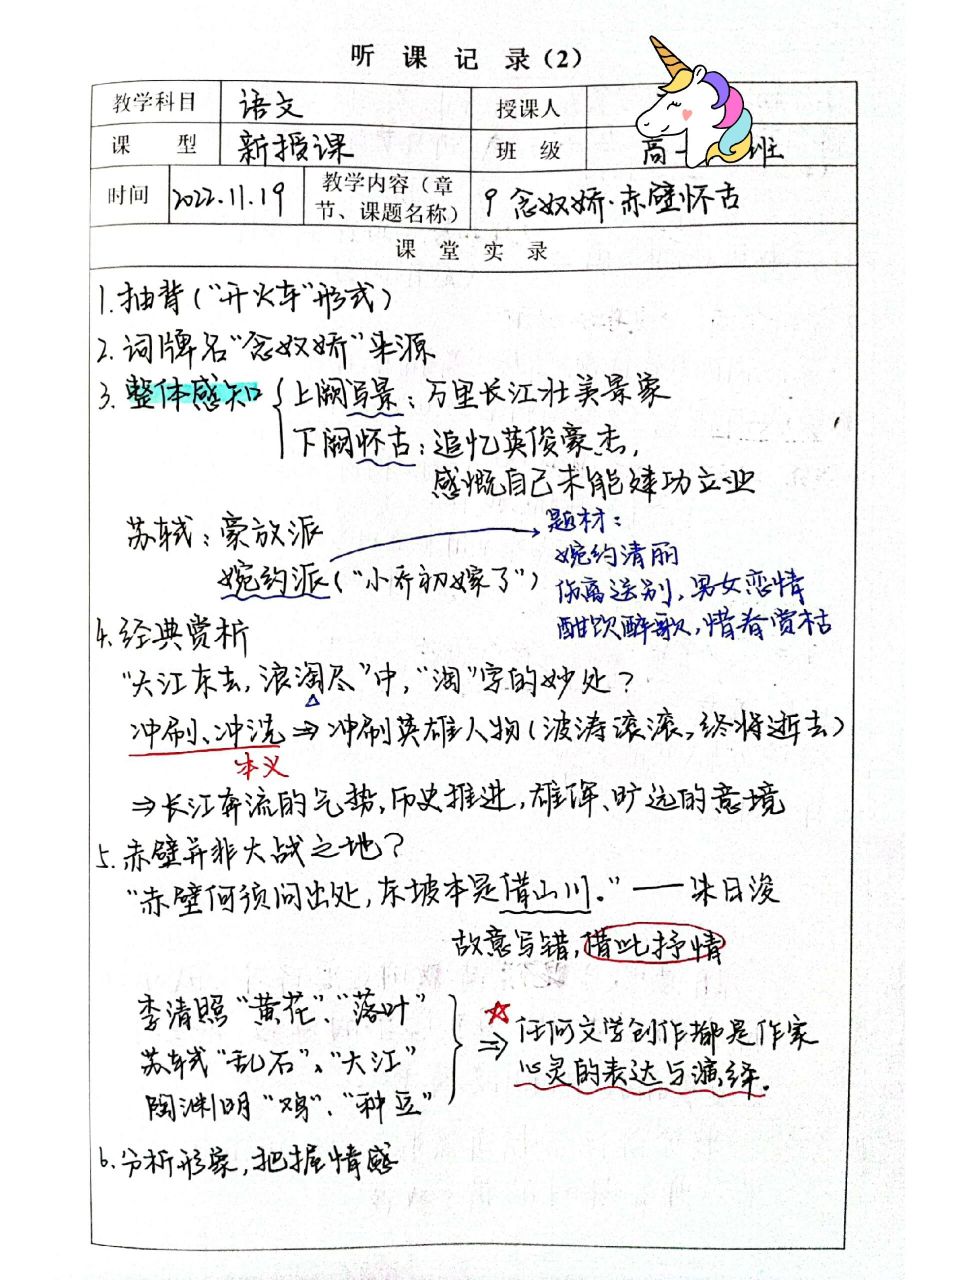 听 课 记 录（2）
教学科目 语文 授课人
课 型 新授课 班 级 高一 班
时间 2022.11.19 教学内容（章节、课题名称） 9 念奴娇·赤壁怀古
课 堂 实 录
1. 抽背（“开火车”形式）
2. 词牌名“念奴娇”来源
3. 整体感知 { 上阙写景：万里长江壮美景象
下阙怀古：追忆英俊豪杰，
感慨自己未能建功立业
苏轼：豪放派
婉约派（“小乔初嫁了”）
题材：
婉约清丽
伤离送别，男女恋情
酣饮醉歌，惜春赏枯
4. 经典赏析
“大江东去，浪淘尽”中，“淘”字的妙处？
冲刷、冲洗 ⇒ 冲刷英雄人物（波涛滚滚，终将逝去）
本义
⇒ 长江奔流的气势，历史推进，雄浑、旷远的意境
5. 赤壁并非大战之地？
“赤壁何须问出处，东坡本是借山川。” —— 朱日浚
故意写错，借此抒情
李清照“黄花”、“落叶”
苏轼“乱石”、“大江”
陶渊明“鸡”、“种豆”
☆ ⇒ 任何文学创作都是作家
心灵的表达与演绎。
6. 分析形象，把握情感